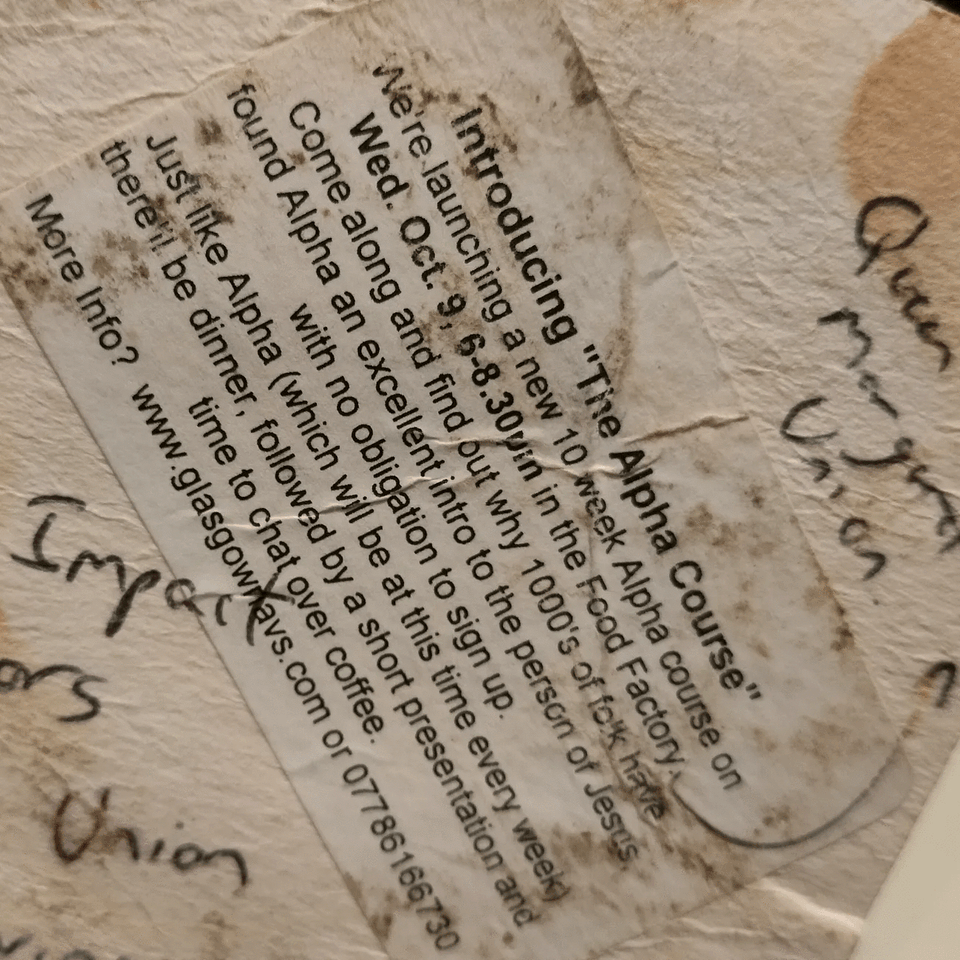 Introducing "The Alpha Course"
We're launching a new 10 week Alpha course on
Wed. Oct. 9, 6-8.30pm in the Food Factory.
Come along and find out why 1000's of folk have
found Alpha an excellent intro to the person of Jesus,
with no obligation to sign up.
Just like Alpha (which will be at this time every week)
there'll be dinner, followed by a short presentation and
time to chat over coffee.
More Info? www.glasgownavs.com or 07786166730
Queen
Margaret
Union
Impact
ors
Union